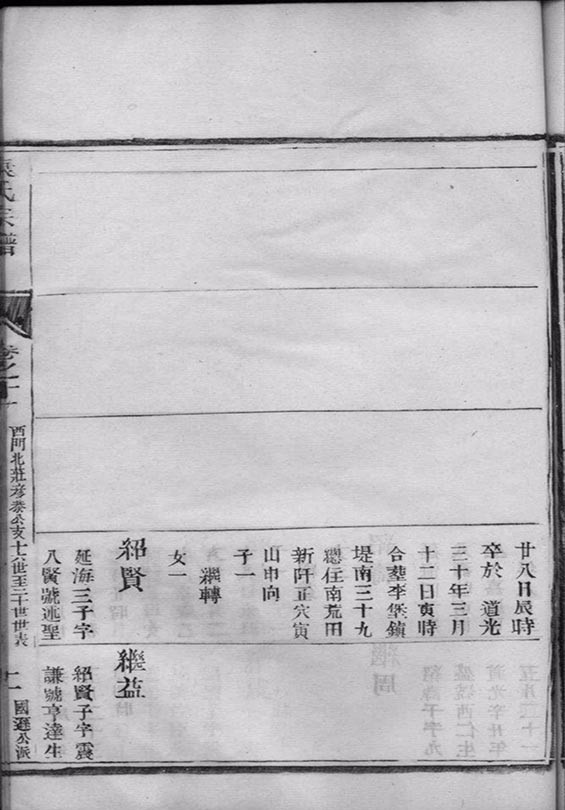 廿八日辰時
卒於 道光
三十年三月
十二日寅時
合塟李堡鎮
堤南三十九
總任南荒田
新阡正穴寅
山申向
子一
繼轉
女一
紹賢
延海三子字
八賢號述聖
繼益
紹賢子字震
謙號亨達生
袁氏宗譜
卷之十一
西門北莊彦泰公亥十六世至二十世世表
國遜公派